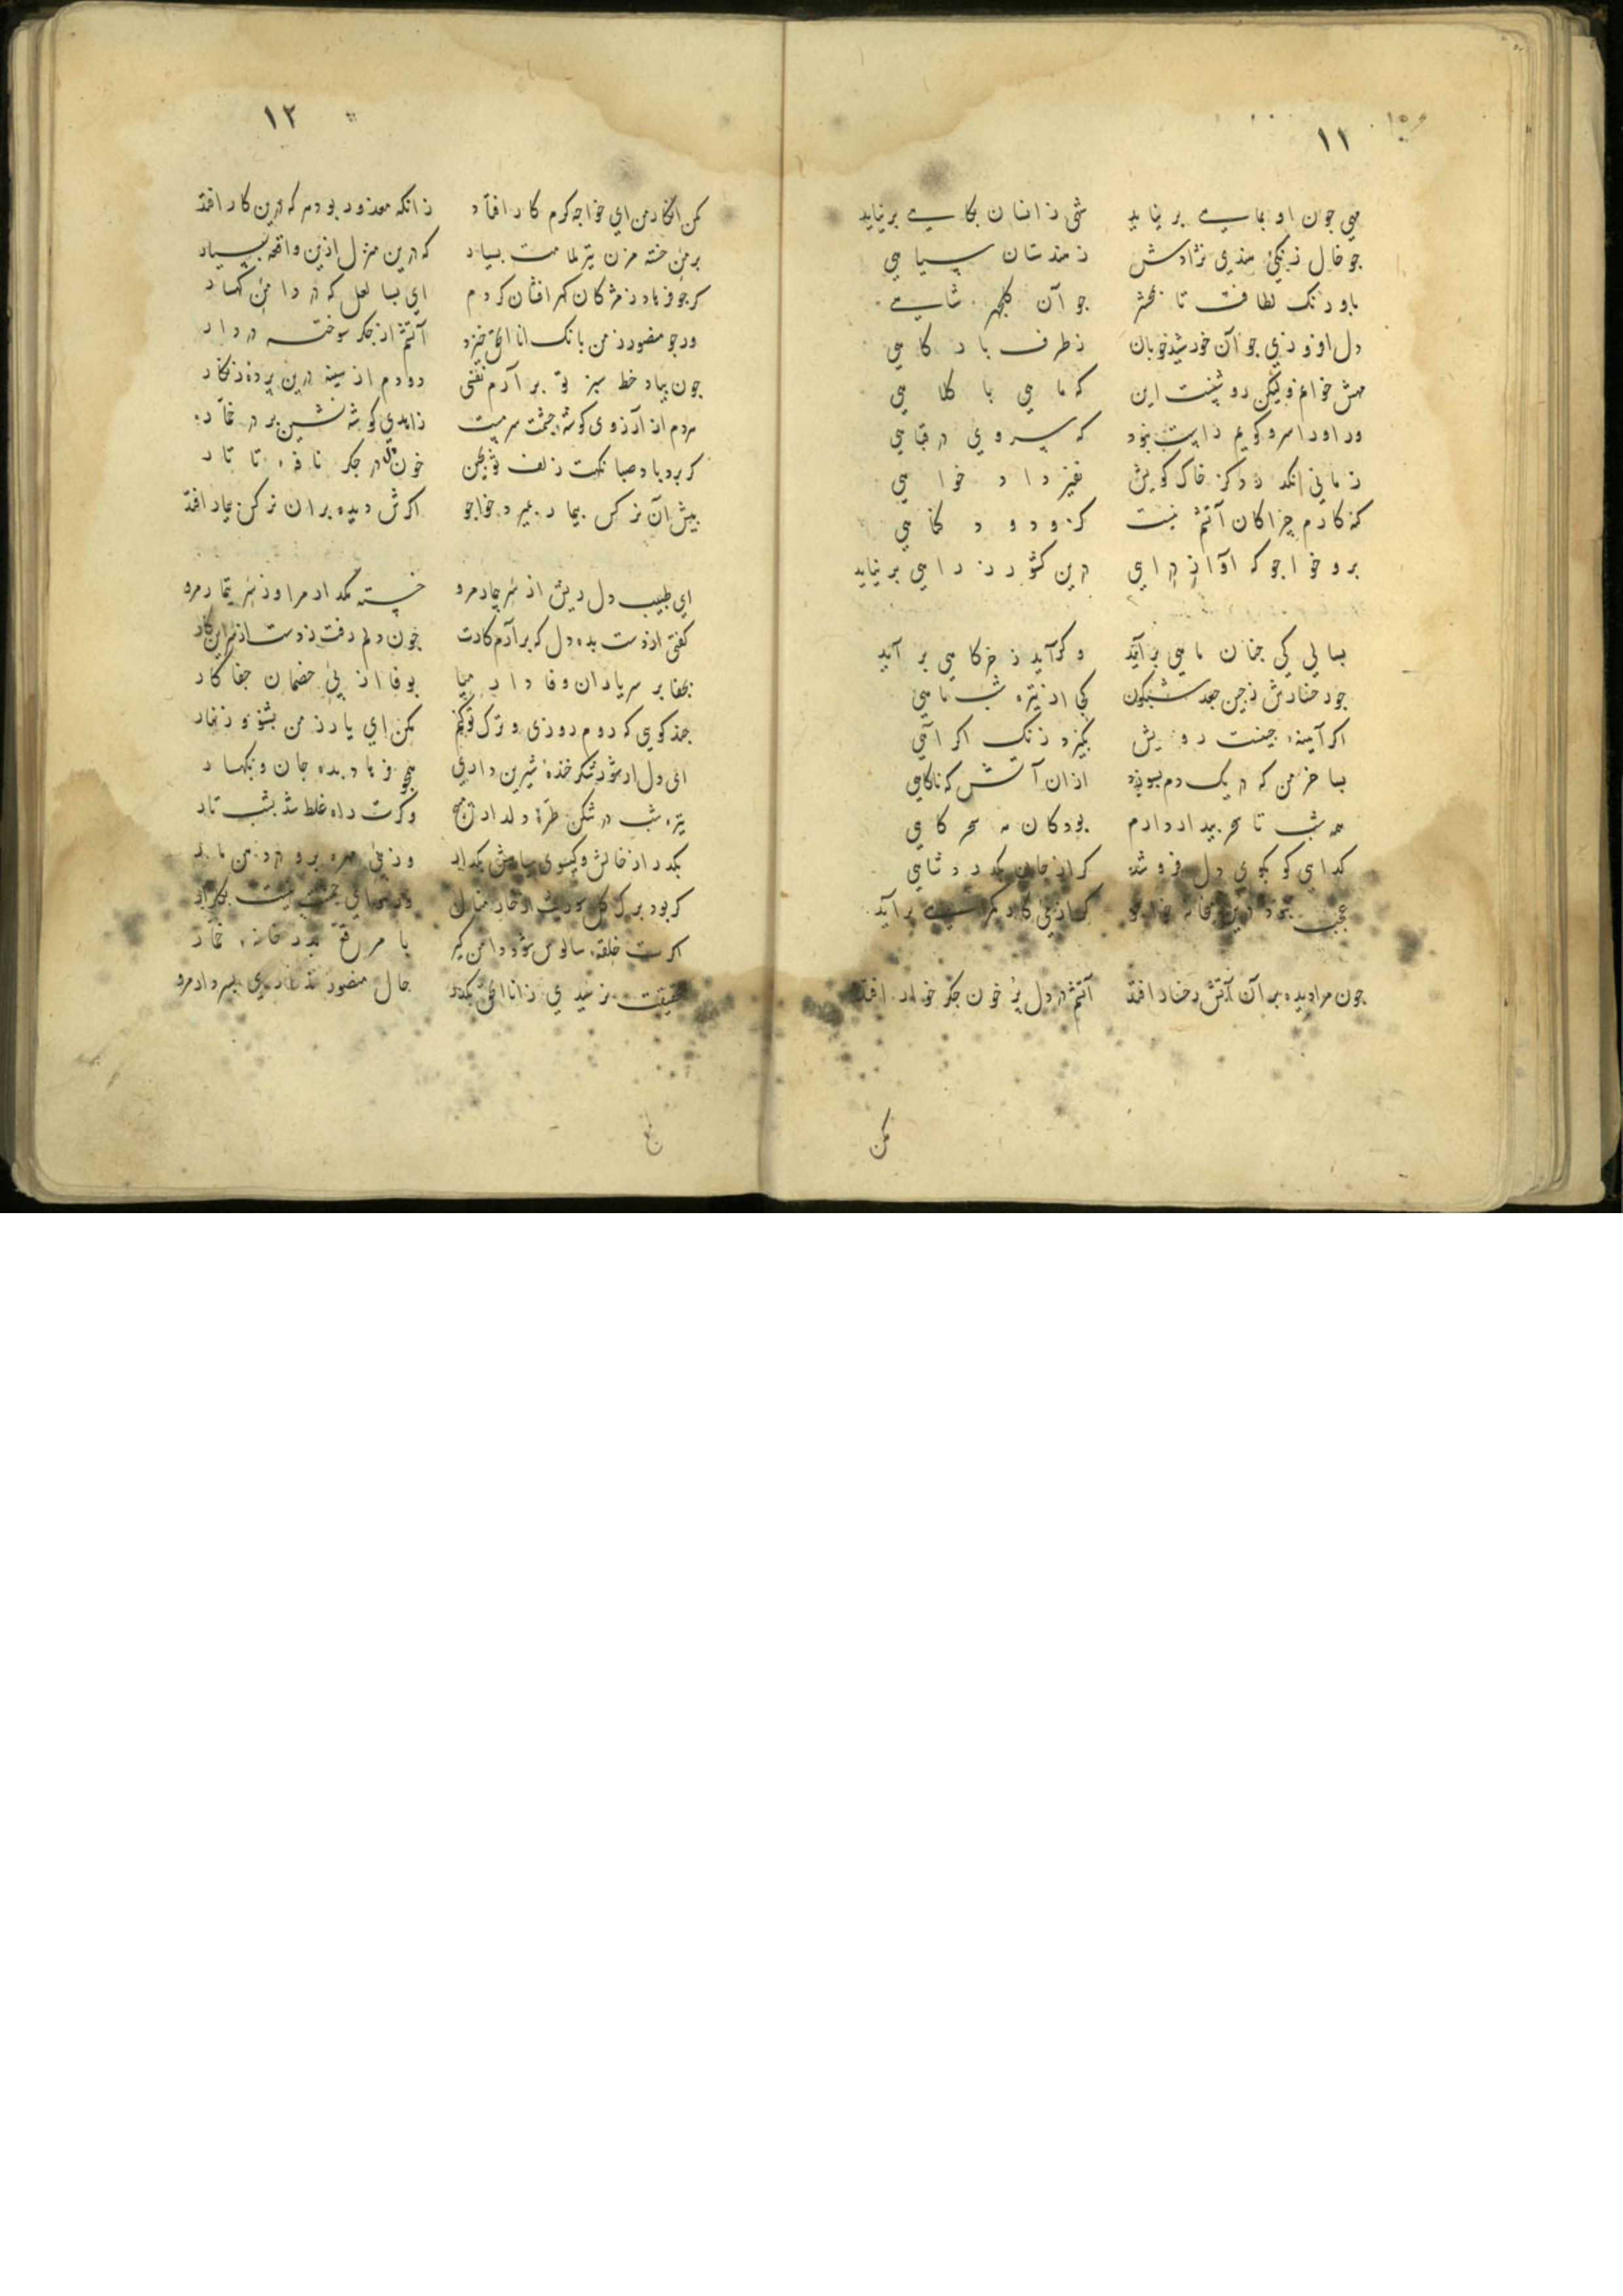 ۱۱
مهی چون او بماهی برنیاید شهی زانسان بکاهی برنیاید
جو خال زنکی هندی نژادش ز هندستان سیاهی
باورنک لطافت تا بمحشر جو آن کلچهر شاهی
دل افروزی جو آن خورشید خوبان ز طرف بارکاهی
مهش خوانم ولیکن روشنست این که ماهی با کلاهی
ور او را سرو کویم راست نبود که سروی در قباهی
زمانی نکذرد کز خاک کویش نفیر داد خواهی
کنه کارم چرا کان آتشم نیست کزو دود کناهی
برو خواجو که آواز درایی درین کشور ز راهی برنیاید
بسالی کی جنان ماهی برآید وکر آید ز خرکاهی بر آید
جو رخسارش ز جین جعد شبکون کجا از تیره شب ماهی
اکر آیینه جینست رویش بکیرد زنک اکر آهی
بسا خرمن که در یک دم بسوزد از ان آتش که ناکاهی
همه شب تا سحر بیدار دارم بود کان مه سحرکاهی
کدای کو بکوی دل فروشد کر از جان بکذرد شاهی
عجب نبود درین خواجو کر از بر آید
جون مرا دیده بر آن آتش رخسار افتد آتشم در دل پر خون جکر خوار افتد
مکن
۱۲
مکن انکار من ای خواجه کرم کار افتاد زانکه معذور بود هر که درین کار افتد
بر من خسته مزن تیر ملامت بسیار که درین منزل ازین واقعه بسیار
کر جو فرهاد ز مژکان کهر افشان کردم ای بسا لعل که در دامن کهسار
ور جو منصور ز من بانک انا الحق خیزد آتشم از جکر سوخته در دار
جون بیاد خط سبز تو برآرم نفسی دودم از سینه درین پرده زنکار
مردم از آرزوی کوشه جشمت سرمست زاهدی کوشه نشین بر در خمار
کر برد باد صبا نکهت زلف تو بجین خون دل در جکر نافه تاتار
پیش آن نرکس بیمار بمیرد خواجو اکرش دیده بران نرکس بیمار افتد
ای طبیب دل ریش از سر بیمار مرو خسته مکذار مرا وز سر تیمار مرو
کفتی از دست بده دل که بر آرم کارت خون دلم رفت ز دست از سر این کار
بجفا بر سر یاران وفادار میا بوفا از پی خصمان جفا کار
جند کویی که روم روزی و ترک تو کنم مکن ای یار ز من بشنو و زنهار
ای دل ار شور شکر خنده شیرین داری همجو فرهاد بده جان و بکهسار
تیره شب در شکن طره دلدار مپیچ وکرت راه غلط شد بشب تار
بکذر از خالش و کیسوی سیاهش بکذار وز پی مهره برو در دهن مار
کر بود برک کل سوریت از خار منال
اکرت خلقه سالوس شود دامن کیر با مرقع بدر خانه خمار
بحقیقت نرسیدی ز انا الحق بکذر حال منصور بسر دار مرو